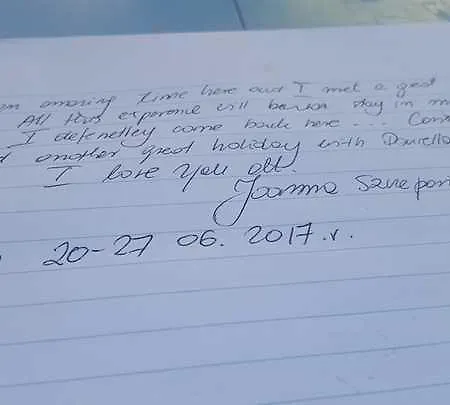 amazing time here and I met a great
All this experience will stay in
I defenetley come back here ...
another great holiday with
I love you all.
Joanna
20-27 06. 2017.r.